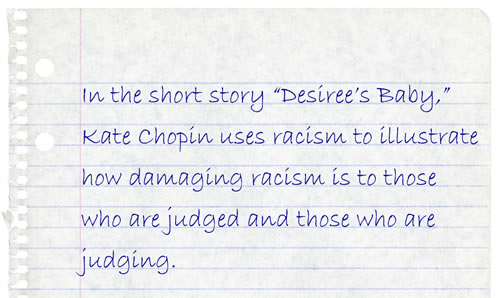 In the short story “Desiree’s Baby,”
Kate Chopin uses racism to illustrate
how damaging racism is to those
who are judged and those who are
judging.